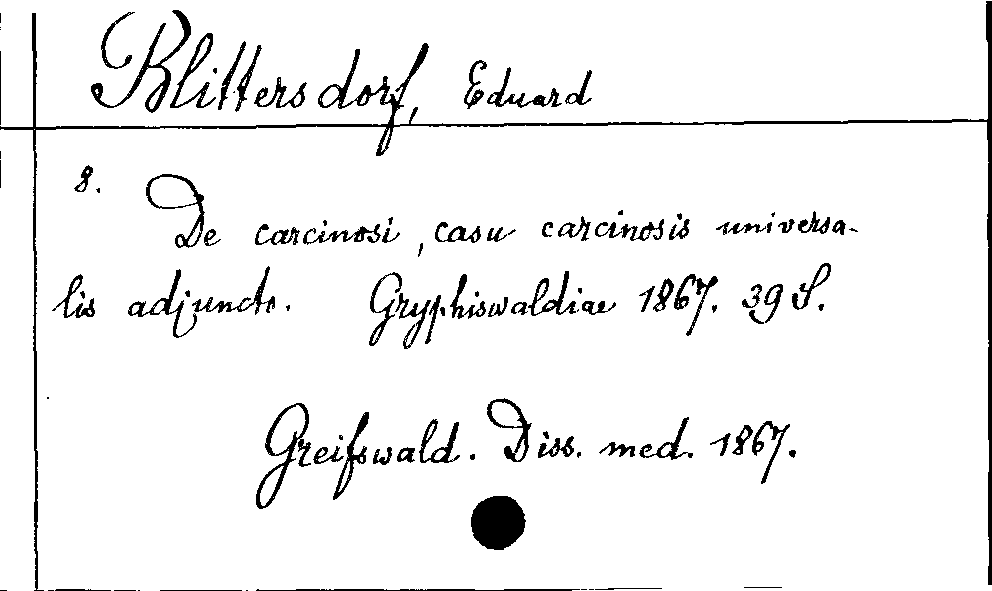 Blittersdorf, Eduard
8.
De carcinosi, casu carcinosis universa-
lis adjuncto. Gryphiswaldiae 1867. 39 S.
Greifswald. Diss. med. 1867.